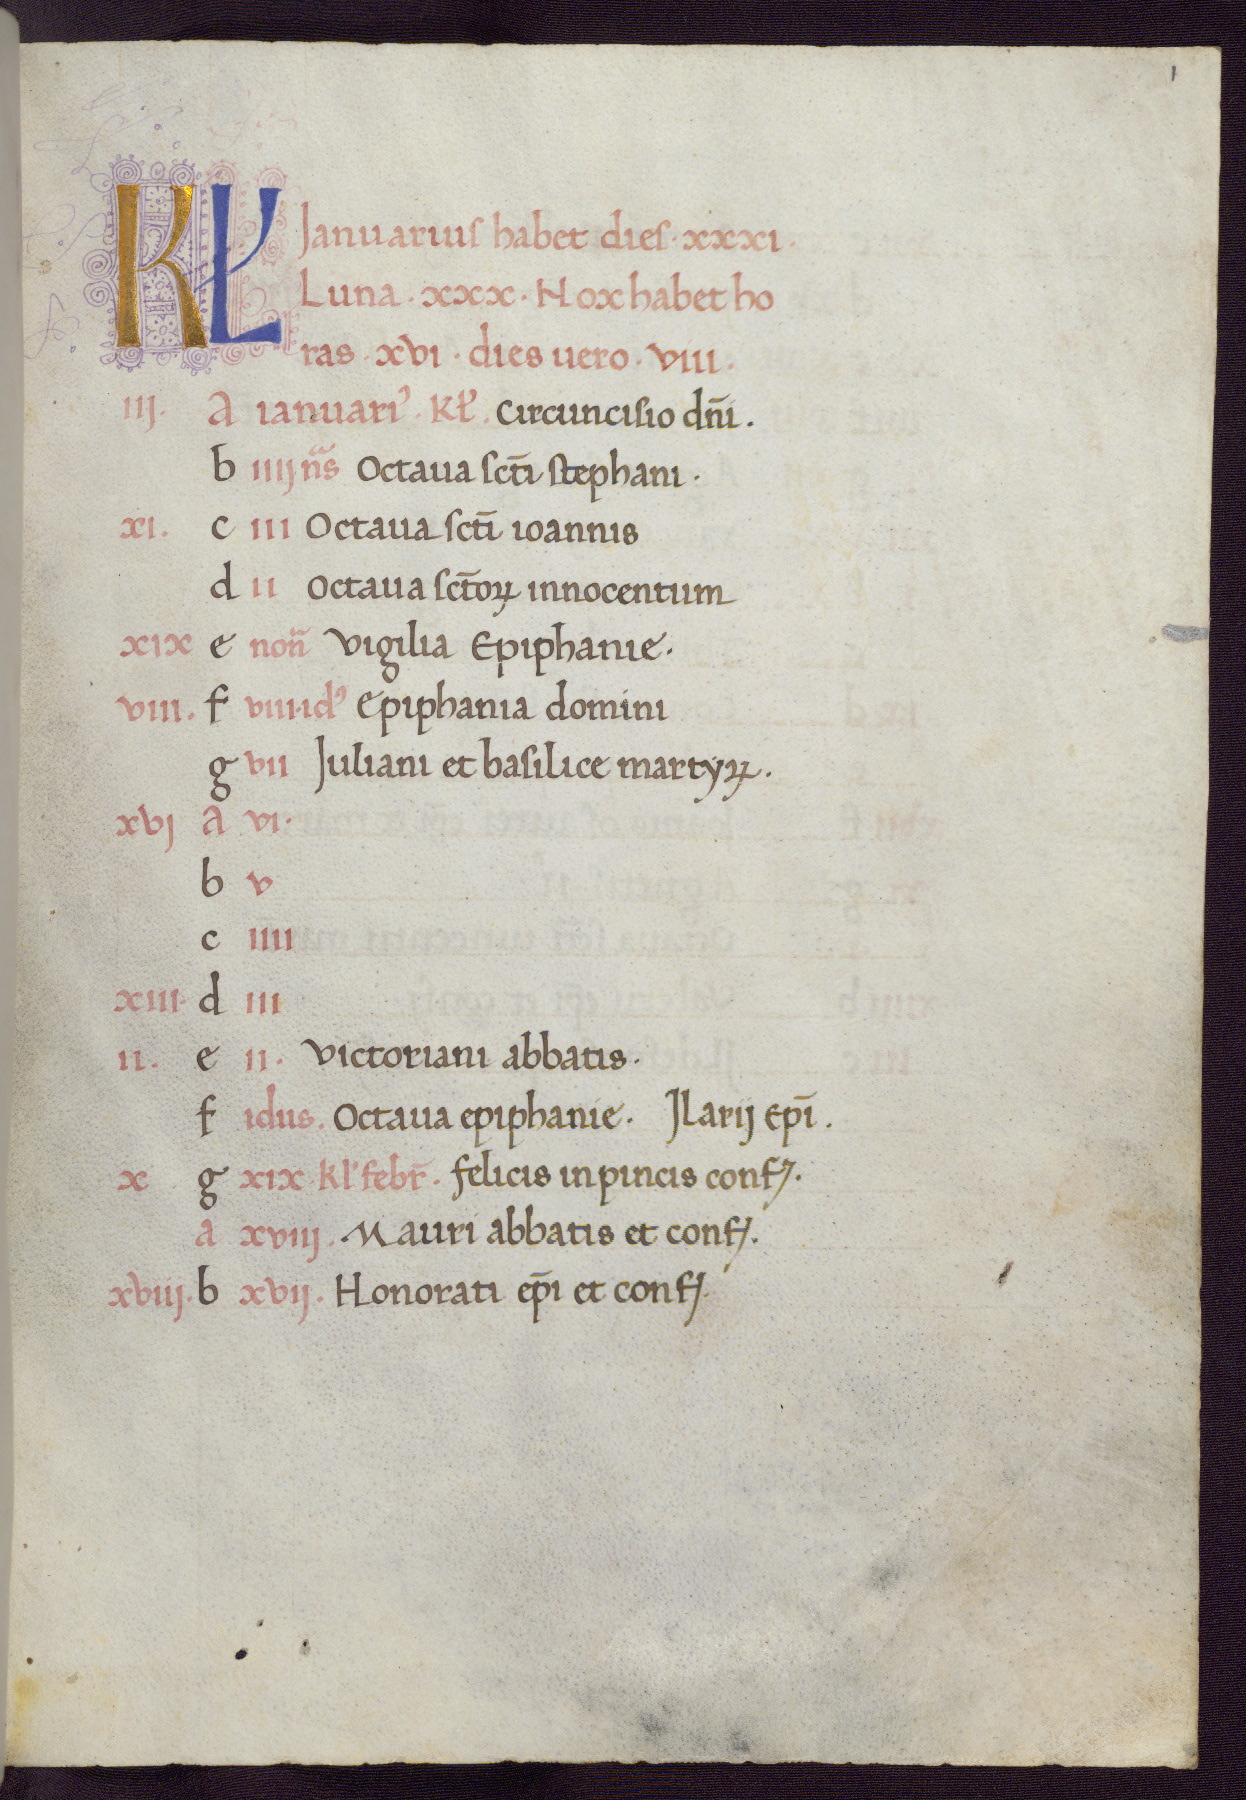 1
KL Januarius habet dies · xxxi ·
Luna · xxx · Nox habet ho
ras · xvi · dies uero · viii ·
iij. A ianuariꝰ · Kł. Circuncisio dn̄i .
b iiij nāˢ Octaua sct̄i stephani ·
xi. c iii Octaua sct̄i ioannis
d ii Octaua sct̄oꝝ innocentum
xix e non̄ Vigilia Epiphanie ·
viii. f viii · idꝰ Epiphania domini
g vii Juliani et basilice martyꝝ .
xvj A vi ·
b v
c iiii
xiii · d iii
ii. e ii · Victoriani abbatis ·
f idus. Octaua epiphanie · Jlarij Ep̄i .
x g xix Kl' febr̄ · felicis in pincis conf₎ ·
a xviij . Mauri abbatis et conf₎ .
xviij · b xvij . Honorati ep̄i et conf₎ .